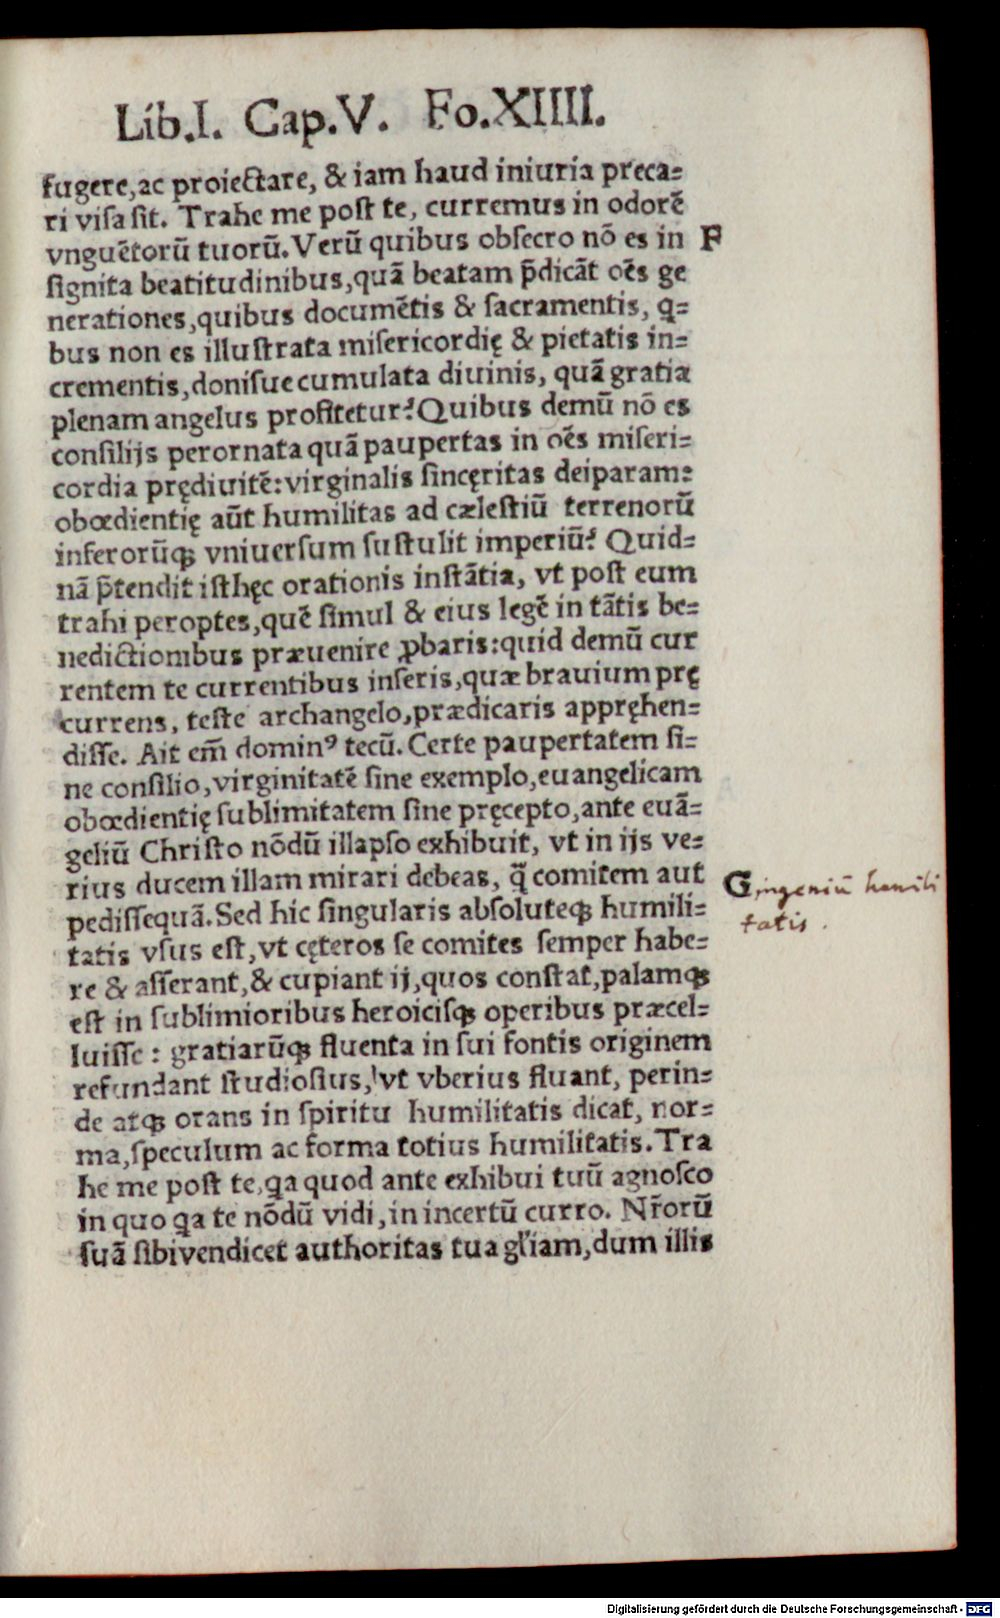 Lib.I. Cap.V. Fo.XIIII.
fugere,ac proiectare, & iam haud iniuria preca⸗
ri viſa ſit. Trahe me poſt te, curremus in odorē
vnguētorū tuorū. Verū quibus obſecro nō es in F
ſignita beatitudinibus,quā beatam p̄dicāt oēs ge
nerationes,quibus documētis & ſacramentis, q⸗
bus non es illuſtrata miſericordię & pietatis in⸗
crementis,doniſue cumulata diuinis, quā gratia
plenam angelus profitetur? Quibus demū nō es
conſilijs perornata quā paupertas in oēs miſeri⸗
cordia prędiuitē: virginalis ſincęritas deiparam:
obœdientię aūt humilitas ad cæleſtiū terrenorū
inferorūqꝫ vniuerſum ſuſtulit imperiū? Quid⸗
nā p̄tendit iſthęc orationis inſtātia, vt poſt eum
trahi peroptes,quē ſimul & eius legē in tātis be⸗
nedictionibus præuenire ꝓbaris: quid demū cur
rentem te currentibus inſeris,quæ brauium prę
currens, teſte archangelo,prædicaris appręhen⸗
diſſe. Ait em̄ dominꝰ tecū. Certe paupertatem ſi⸗
ne conſilio,virginitatē ſine exemplo,euangelicam
obœdientię ſublimitatem ſine pręcepto,ante euā⸗
geliū Chriſto nōdū illapſo exhibuit, vt in ijs ve⸗
rius ducem illam mirari debeas, q̄ comitem aut
pediſſequā. Sed hic ſingularis abſoluteqꝫ humili⸗
tatis vſus eſt,vt cęteros ſe comites ſemper habe⸗
re & aſſerant,& cupiant ij,quos conſtat,palamqꝫ
eſt in ſublimioribus heroiciſqꝫ operibus præcel⸗
luiſſe : gratiarūqꝫ fluenta in ſui fontis originem
refundant ſtudioſius, vt vberius fluant, perin⸗
de atqꝫ orans in ſpiritu humilitatis dicat, nor⸗
ma,ſpeculum ac forma totius humilitatis. Tra
he me poſt te,qa quod ante exhibui tuū agnoſco
in quo qa te nōdū vidi,in incertū curro. Nr̄orū
ſuā ſibi vendicet authoritas tua gl̄iam,dum illis
G ingeniū humili
tatis .
Digitalisierung gefördert durch die Deutsche Forschungsgemeinschaft - DFG